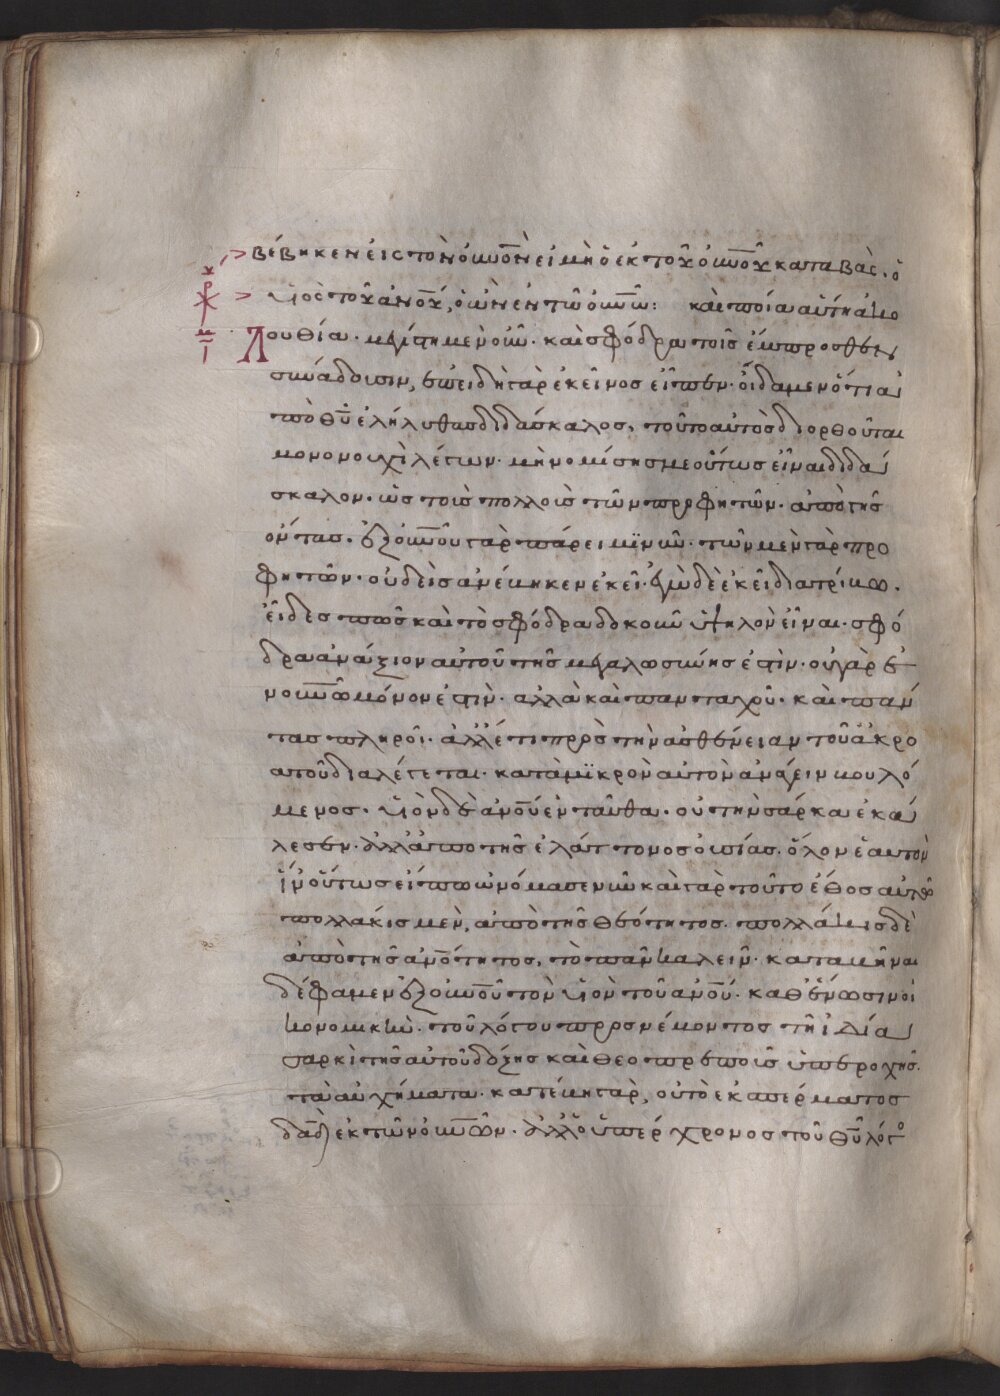 βέβηκεν εἰς τὸν ὀυ̅ν̅ο̅ν̅ εἰ μὴ ὁ ἐκ τοῦ ὀυ̅ν̅οῦ καταβάς. ὁ
υἱὸς τοῦ ἀν̅ο̅υ̅, ὁ ὢν ἐν τῶ ὀυ̅ν̅ῶ: καὶ ποία αὕτη ἀκο
λουθία· μεγίστη μὲν οὖν· καὶ σφόδρα τοῖς ἔμπροσθεν
συνάδουσιν, ἐπειδὴ γὰρ ἐκεῖνος εἶπεν· οἴδαμεν ὅτι ἀ
πὸ θ̅υ̅ ἐλήλυθας διδάσκαλος, τοῦτο αὐτὸς διορθοῦται
μονονουχὶ λέγων· μὴ νομίσης με οὕτως εἶναι διδά
σκαλον· ὡς τοὺς πολλοὺς τῶν προφητῶν· ἀπὸ γῆς
ὄντας· ἐξ ὀυ̅ν̅οῦ γὰρ πάρειμι νῦν· τῶν μὲν γὰρ προ
φητῶν· οὐδεὶς ἀνέβηκεν ἐκεῖ· ἐγὼ δὲ ἐκεῖ διατρίβω.
εἶδες πῶς καὶ τὸ σφόδρα δοκοῦν ὑψηλὸν εἶναι· σφό
δρα ἀνάξιον αὐτοῦ τῆς μεγαλωσύνης ἐστίν· οὐ γὰρ ἐ
ν ὀυ̅ν̅ῶ μόνον ἐστὶν· ἀλλὰ καὶ πανταχοῦ· καὶ πάν
τα πληροῖ· ἀλλ' ἔτι πρὸς τὴν ἀσθένειαν τοῦ ἀκρο
ατοῦ διαλέγεται· κατὰ μικρὸν αὐτὸν ἀνάγειν βουλό
μενος. υἱὸν δὲ ἀν̅ο̅υ̅ ἐνταῦθα· οὐ τὴν σάρκα ἐκά
λεσεν· ἀλλ' ἀπὸ τῆς ἐλάττονος οὐσίας. ὅλον ἑαυτὸν
ἵν' οὕτως εἴπω ὠνόμασε νῦν καὶ γὰρ τοῦτο ἔθος αὐτῶ
πολλάκις μὲν, ἀπὸ τῆς θεότητος. πολλάκις δὲ
ἀπὸ τῆς ἀν̅ο̅τητος, τὸ πᾶν καλεῖν· καταβῆναι
δέ φαμεν ἐξ ὀυ̅ν̅οῦ τὸν υἱὸν τοῦ ἀν̅ο̅υ̅· καθ' ἕνωσιν οἰ
κονομικὴν· τοῦ λόγου προσνέμοντος τῆ ἰδία
σαρκὶ τῆς αὐτοῦ δόξης καὶ θεοπρεποῦς ὑπεροχῆς.
τὰ αὐχήματα· κατέβη γὰρ, οὐ τὸ ἐκ σπέρματος
δα̅δ̅ ἐκ τῶν ὀυ̅ν̅ῶν· ἀλλ' ὁ ὑπέρχρονος τοῦ θ̅υ̅ λόγο